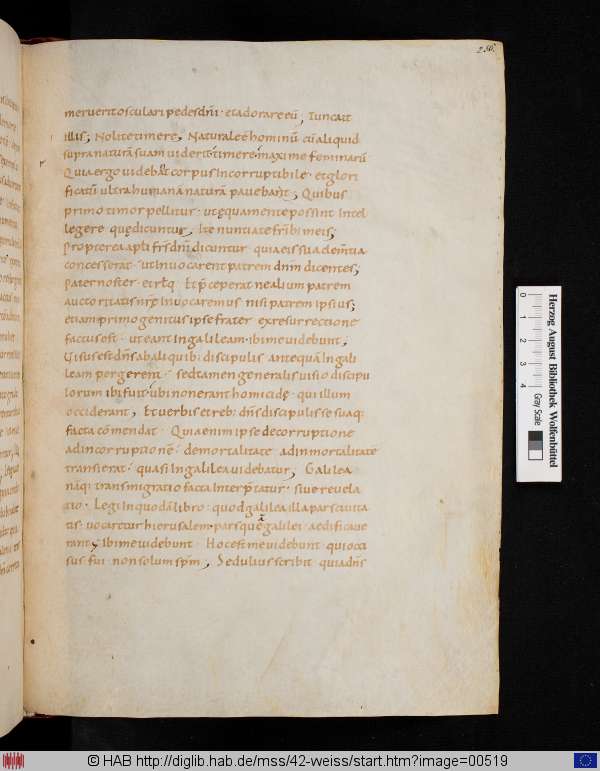 256.
meruerit osculari pedes dñi· et adorare eū, Tunc ait
illis; Nolite timere, Naturale ē hominū cū aliquid
supra naturā suam uiderint timere· maxime feminarū
Quia ergo uidebat corpus incorruptibile· et glori
ficatū ultra humanā naturā pauebant; Quibus
primo timor pellitur· ut ęquamente possint intel
legere quę dicuntur, Ite nuntiate fribꝰ meis;
propterea apli frs dñi dicuntur quia eis sua clem̅tia
concesserat· ut inuocarent patrem dnm̅ dicentes;
pater noster· et rlq̅ Et p̅ceperat ne alium patrem
auctoritatis nrę inuocaremus nisi patrem ipsius;
etiam primogenitus ipse frater ex resurrectione
factus est· ut eant in galileam· ibi me uidebunt,
Uisus est dñs ab aliquib; discipulis antequā in gali
leam pergerent· sed tamen generalis uisio discipu
lorum ibi fuit· ubi non erant homicidę· qui illum
occiderant, Et uerbis et reb; dñs discipulis se suaq;
facta cōmendat· Quia enim ipse de corruptione
ad incorruptionē· de mortalitate ad inmortalitate
transierat· quasi in galilea uidebatur, Galilea
nāq; transmigratio facta interp̅tatur· siue reuela
tio· Legi in quodā libro· quod galilea illa pars ciuita
tis· uocaretur hierusalem· pars quę a galilei aedificaue
rant, Ibi me uidebunt· Hoc est me uidebunt qui occi
sus fui· non solum spm̅, Sedulius scribit quia dñs
0 1 2 3 4
Gray Scale
Herzog August Bibliothek Wolfenbüttel
© HAB http://diglib.hab.de/mss/42-weiss/start.htm?image=00519